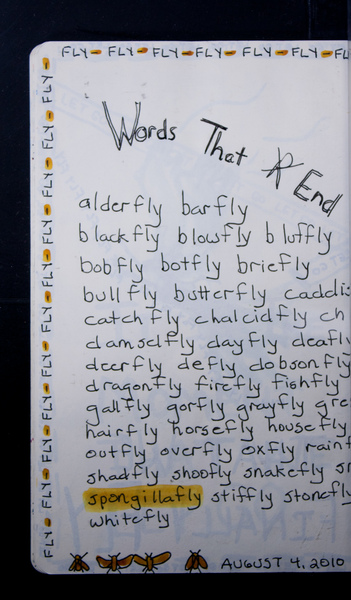 FLY FLY FLY FLY FLY FLY FL
FLY FLY FLY FLY FLY FLY FLY FLY FLY FLY
Words That End
alderfly barfly
blackfly blowfly bluffly
bobfly botfly briefly
bullfly butterfly caddis
catchfly chalcidfly ch
damselfly dayfly deafl
deerfly defly dobsonfly
dragonfly firefly fishfly
gallfly gorfly grayfly gre
hairfly horsefly housefly
outfly overfly oxfly rain
shadfly shoofly snakefly sn
spongillafly stiffly stonefly
whitefly
AUGUST 4, 2010